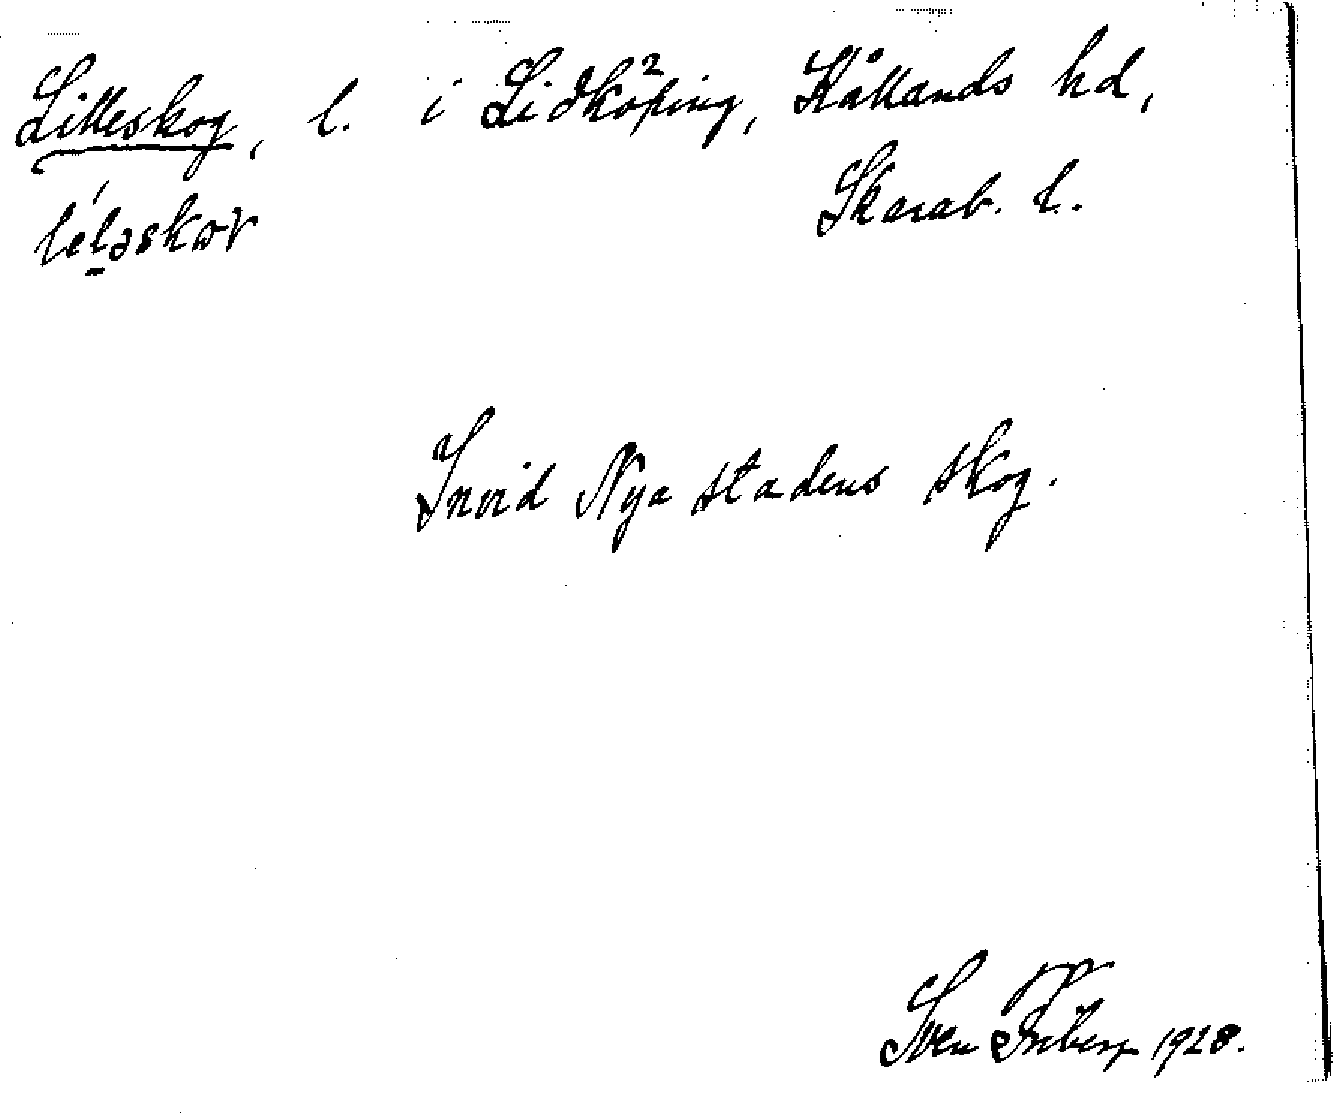 Lilleskog, l. i Lidköping, Kållands hd,
Skarab. l.
Invid Nya stadens skog.
Sven 1928.